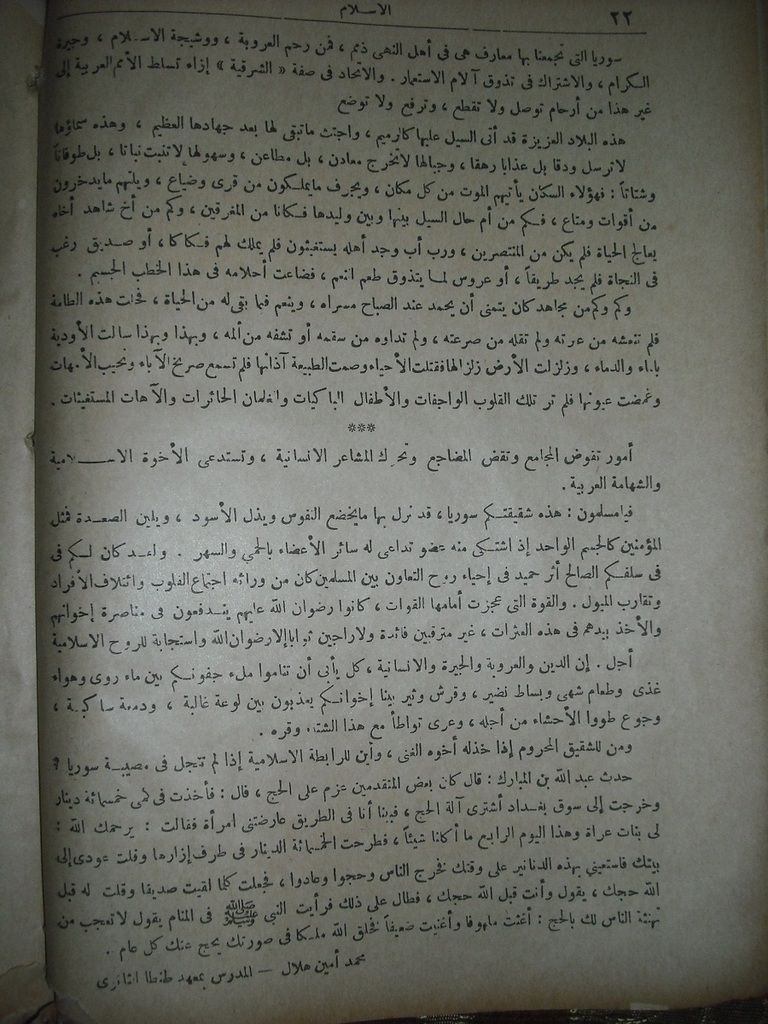 ٢٢
الاسلام
سوريا التى تجمعنا بها معارف هى فى أهل النهى ذمم ، فمن رحم العروبة ، ووشيجة الاسلام ، وجيرة
الكرام ، والاشتراك فى تذوق آلام الاستعمار . والاتحاد فى صفة « الشرقية » إزاء تسلط الأمم العربية إلى
غير هذا من أرحام توصل ولا تقطع ، وترفع ولا توضع
هذه البلاد العزيزة قد أتى السيل عليها كالرميم ، واجتث ماتبقى لها بعد جهادها العظيم ، وهذه سماؤها
لاترسل ودقا بل عذابا رهقا ، وجبالها لاتخرج معادن ، بل مطاعن ، وسهولها لاتنبت نباتا ، بل طوفانا
وشتاتاً : فهؤلاء السكان يأتيهم الموت من كل مكان ، ويجرف مايملكون من قرى وضياع ، ويلتهم مايدخرون
من أقوات ومتاع ، فكم من أم حال السيل بينها وبين وليدها فكانا من المغرقين ، وكم من أخ شاهد أخاه
يعالج الحياة فلم يكن من المنتصرين ، ورب أب وجد أهله يستغيثون فلم يملك لهم فكاكا ، أو صديق رغب
فى النجاة فلم يجد طريقاً ، أو عروس لما يتذوق طعم النعم ، فضاعت أحلامه فى هذا الخطب الجسيم .
وكم وكم من مجاهد كان يتمنى أن يحمد عند الصباح مسراه ، وينعم فيما بقى له من الحياة ، فجاءت هذه الطامة
فلم تنعشه من عثرته ولم تقله من صرعته ، ولم تداوه من سقمه أو تشفه من ألمه ، وبهذا وبهذا سالت الأودية
بالماء والدماء ، وزلزلت الأرض زلزالها فقتلت الأحياء وصمت الطبيعة آذانها فلم تسمع صريخ الآباء ونحيب الأمهات
وغمضت عيونها فلم تر تلك القلوب الواجفات والأطفال الباكيات والغلمان الحائرات والآهات المستغيثات .
***
أمور تقوض المجامع وتقض المضاجع وتحرك المشاعر الانسانية ، وتستدعى الأخوة الاسلامية
والشهامة العربية .
فيامسلمون : هذه شقيقتكم سوريا ، قد نزل بها مايخضع النفوس ويذل الأسود ، ويلين الصعدة فمثل
المؤمنين كالجسم الواحد إذ اشتكى منه عضو تداعى له سائر الأعضاء بالحمى والسهر . ولقد كان لكم فى
فى سلفكم الصالح أثر حميد فى إحياء روح التعاون بين المسلمين كان من ورائه اجتماع القلوب وائتلاف الأفراد
وتقارب الميول . والقوة التى عجزت أمامها القوات ، كانوا رضوان الله عليهم يندفعون فى مناصرة إخوانهم
والأخذ بيدهم فى هذه العثرات ، غير مترقبين فائدة ولا راجين ثوابا إلا رضوان الله واستجابة للروح الاسلامية
أجل . إن الدين والعروبة والجيرة والانسانية ، كل يأبى أن تناموا ملء جفونكم بين ماء روى وهواء
غذى وطعام شهى وبساط نضير ، وفرش وثير بينا إخوانكم يعذبون بين لوعة غالبة ، ودمعة ساكبة ،
وجوع طووا الأحشاء من أجله ، وعرى تواطأ مع هذا الشتاء وقره .
ومن للشقيق المحروم إذا خذله أخوه الغنى ، وأين للرابطة الاسلامية إذا لم تتجل فى مصيبة سوريا ؟
حدث عبد الله بن المبارك : قال كان بعض المتقدمين عزم على الحج ، قال : فأخذت فى كمى خمسمائة دينار
وخرجت إلى سوق بغداد أشترى آلة الحج ، فبينا أنا فى الطريق عارضتنى امرأة فقالت : يرحمك الله :
لى بنات عراة وهذا اليوم الرابع ما أكلنا شيئاً ، فطرحت الخمسمائة الدينار فى طرف إزارها وقلت عودى إلى
بيتك فاستعينى بهذه الدنانير على وقتك فخرج الناس وحجوا وعادوا ، فجعلت كلما لقيت صديقا وقلت له قبل
الله حجك ، يقول وأنت قبل الله حجك ، فطال على ذلك فرأيت النبى ﷺ فى المنام يقول لا تعجب من
تهنئة الناس لك بالحج : أغثت ملهوفا وأغنيت ضعيفاً فخلق الله ملكا فى صورتك يحج عنك كل عام .
محمد أمين هلال — المدرس بمعهد طنطا الثانوى